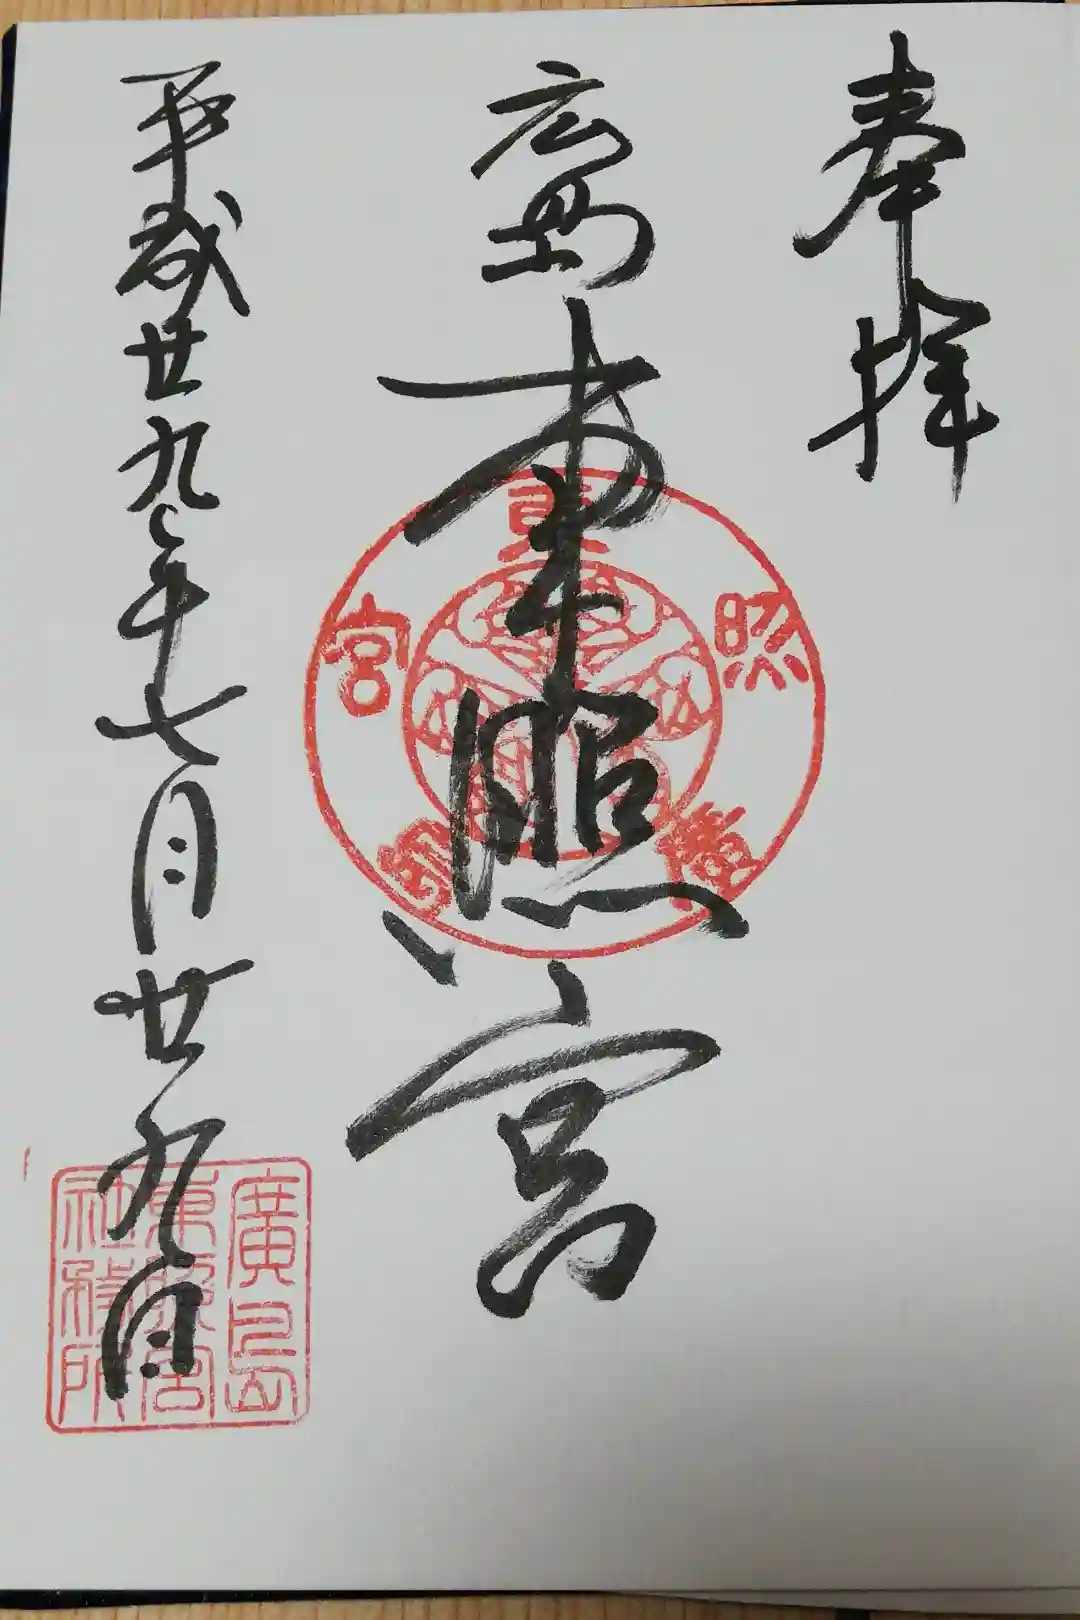 奉拝
広島東照宮
平成廿九年七月廿九日
東照宮廣島
廣島
東照宮
社務所